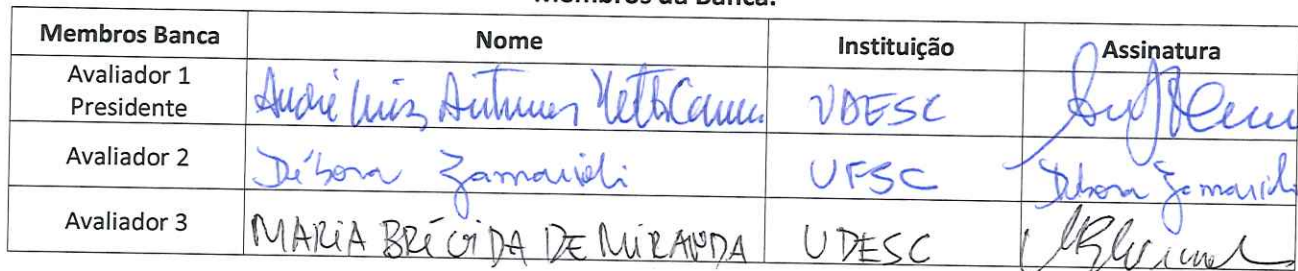 Membros da Banca:
Membros Banca Nome Instituição Assinatura
Avaliador 1
Presidente André Luiz Antunes Netto Carreira UDESC
Avaliador 2 Débora Zamarioli UFSC Débora Zamarioli
Avaliador 3 MARIA BRÍGIDA DE MIRANDA UDESC